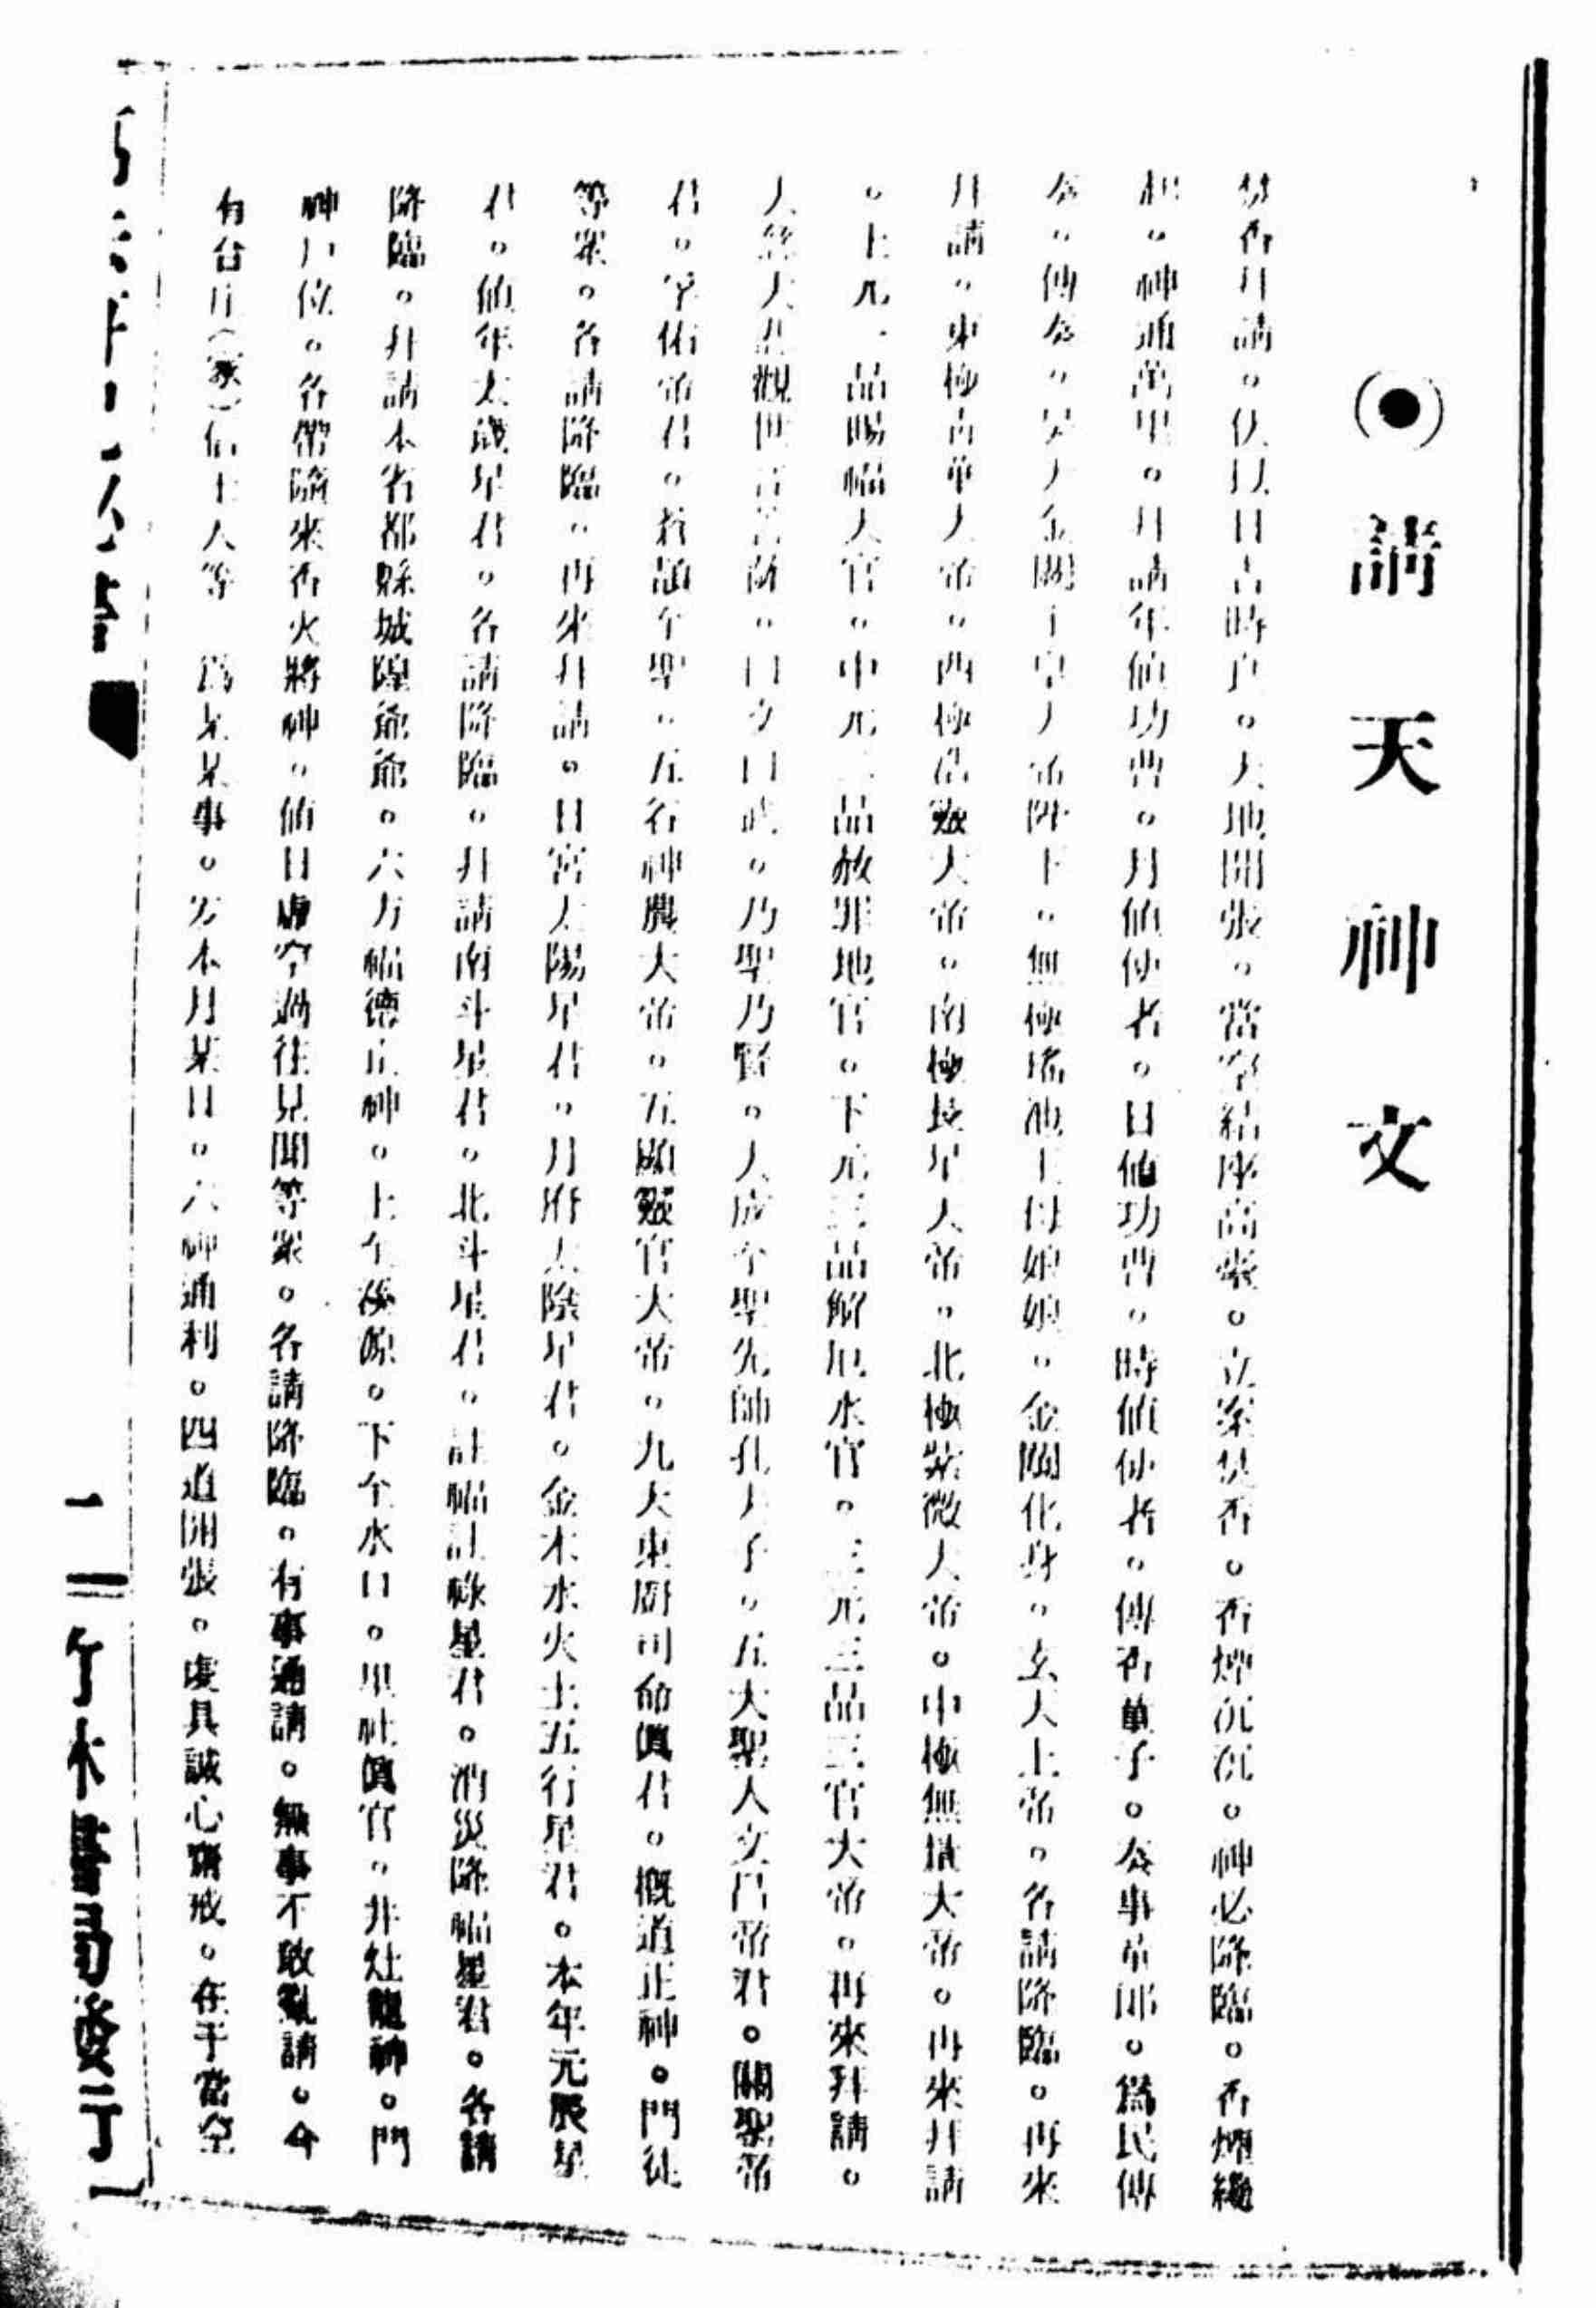 請天神文
焚香拜請。伏以日吉時良。天地開張。當空結座高張。立案焚香。香煙沉沉。神必降臨。香煙繞
起。神通萬里。拜請年值功曹。月值使者。日值功曹。時值使者。傳香童子。奏事童郎。為民傳
奏。傳奏。昊天金闕玉皇大帝陛下。無極瑤池王母娘娘。金闕化身。玄天上帝。各請降臨。再來
拜請。東極青華大帝。西極浩皈大帝。南極長星大帝。北極紫微大帝。中極無 大帝。再來拜請
。上元一品賜福天官。中元二品赦罪地官。下元三品解厄水官。三元三品三官大帝。再來拜請。
大慈大悲觀世音菩薩。曰文曰武。乃聖乃賢。大成至聖先師孔夫子。五大聖人文昌帝君。關聖帝
君。孚佑帝君。蒼頡至聖。五谷神農大帝。五顯皈官大帝。九天東廚司命真君。概道正神。門徒
等眾。各請降臨。再來拜請。日宮太陽星君。月府太陰星君。金木水火土五行星君。本年元辰星
君。值年太歲星君。各請降臨。拜請南斗星君。北斗星君。註福註祿星君。消災降福星君。各請
降臨。拜請本省都縣城隍爺爺。六方福德正神。上至 源。下至水口。里社真官。井灶龍神。門
神戶位。各帶隨來香火將神。值日虛空過往見聞等眾。各請降臨。有事通請。無事不敢亂請。今
有台庄（家）信士人等　為某某事。  本月某日。六神通利。四道開張。虔具誠心齋戒。在于當空
二
竹林書局發行